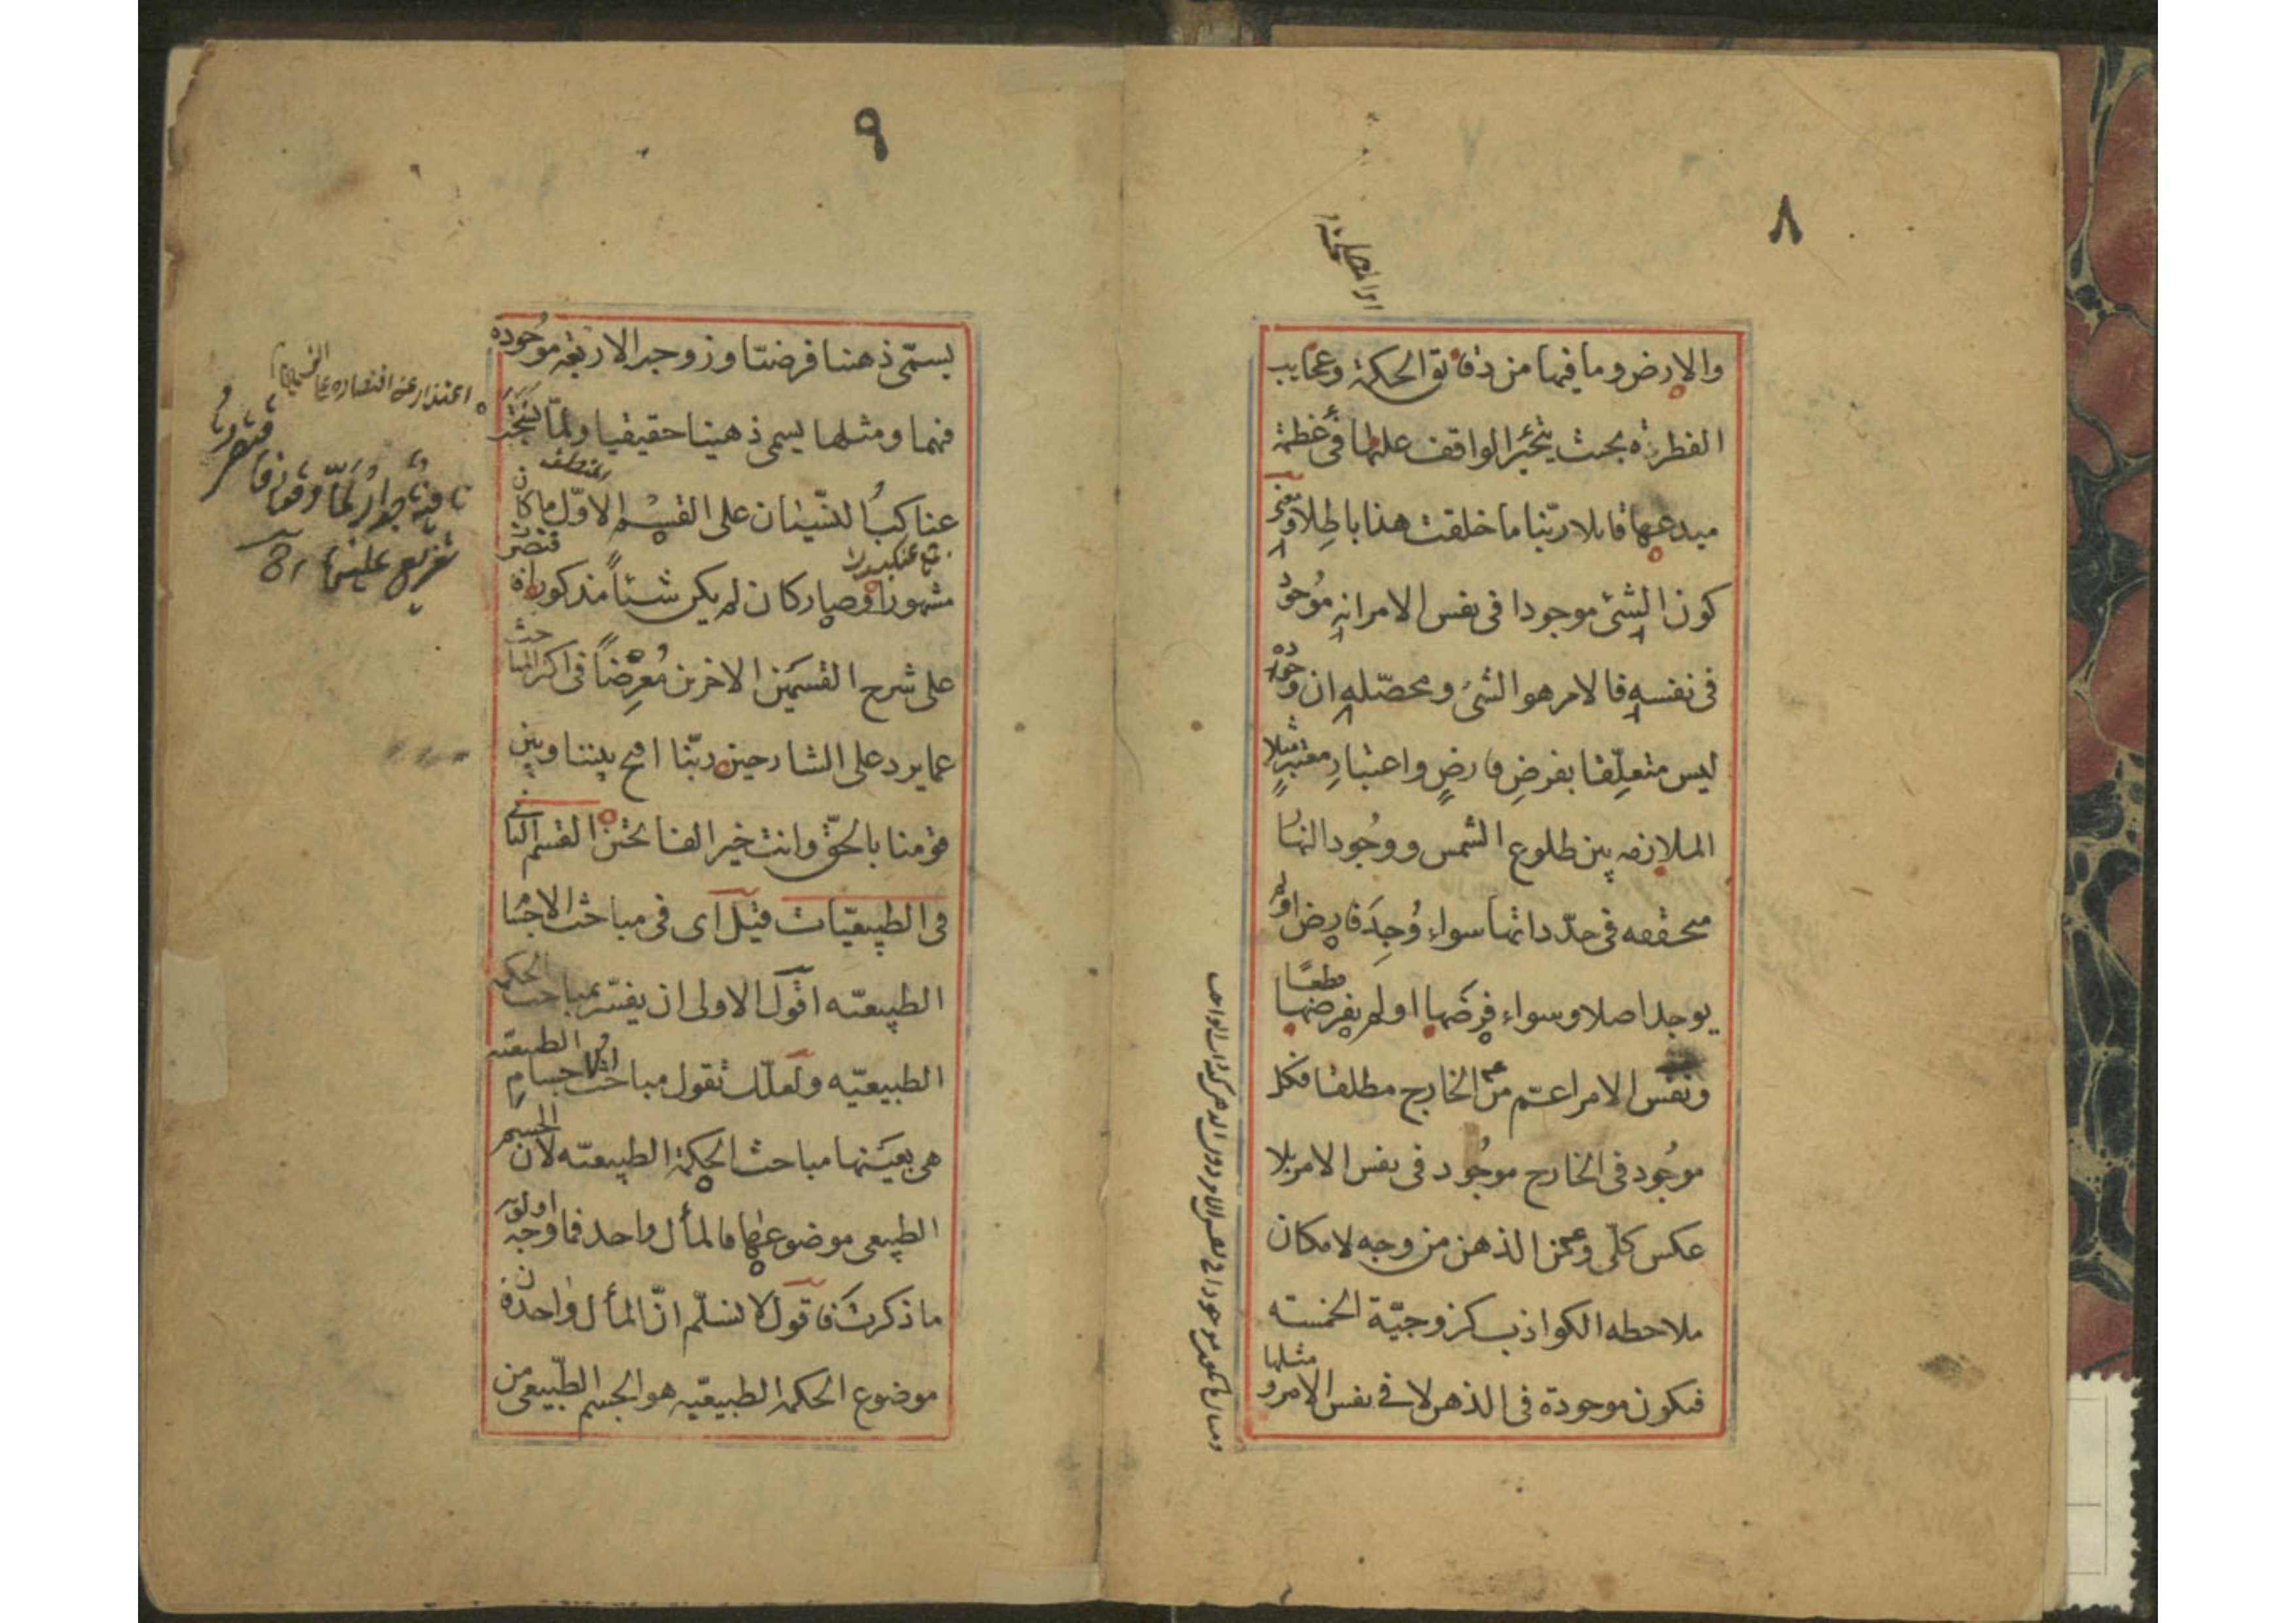 ٨
والارض وما فيها من دقائق الحكمة وعجايب
الفطرة بحيث يتحير الواقف عليها في عظمة
مبدعها قايلا ربّنا ما خلقت هذا باطلا ومعنى
كون الشئ موجودا في نفس الامر انه موجود
في نفسه فالامر هو الشئ ومحصّله ان وجوده
ليس متعلّقا بفرضِ فارضٍ واعتبارِ معتبرٍ مثلا
الملازمه بين طلوع الشمس ووجود النهار
متحققه في حدّ ذاتها سواء وُجِدَ فارض او لم
يوجد اصلا وسواء فرضها او لم يفرضها قطعًا
ونفس الامر اعمّ من الخارج مطلقا فكل
موجود في الخارج موجود في نفس الامر بلا
عكس كلّى ومن الذهن من وجه لامكان
ملاحظه الكواذب كزوجيّة الخمسه
فيكون موجودة في الذهن لا في نفس الامر ومثلها
٩
يسمّى ذهنيا فرضيّا وزوجية الاربعة موجوده
فيهما ومثلها يسمى ذهنيا حقيقيا ولمّا نسجت
عناكب النسيان على القسم الاوّل ما كان
مشهورا وصار كان لم يكن شيئاً مذكورا
على شرح القسمين الاخرين مُعرِضاً في اكثر المباحث
عما يرد على الشارحين ربّنا افتح بيننا وبين
قومنا بالحقّ وانت خير الفاتحين القسم الثاني
في الطبيعيّات قيل اى في مباحث الاجسام
الطبيعيّه اقول الاولى ان يفسّر بمباحث الحكمه
الطبيعيّه ولعلّك تقول مباحث الاجسام الطبيعيّه
هي بعينها مباحث الحكمة الطبيعيّه لان الجسم
الطبيعى موضوعها فالمأل واحد فما وجه اولويّه
ما ذكرت فاقول لا نسلّم انّ المأل واحد فان
موضوع الحكمة الطبيعيّه هو الجسم الطّبيعى من
اعتذار عن اقتصاره على القسمين